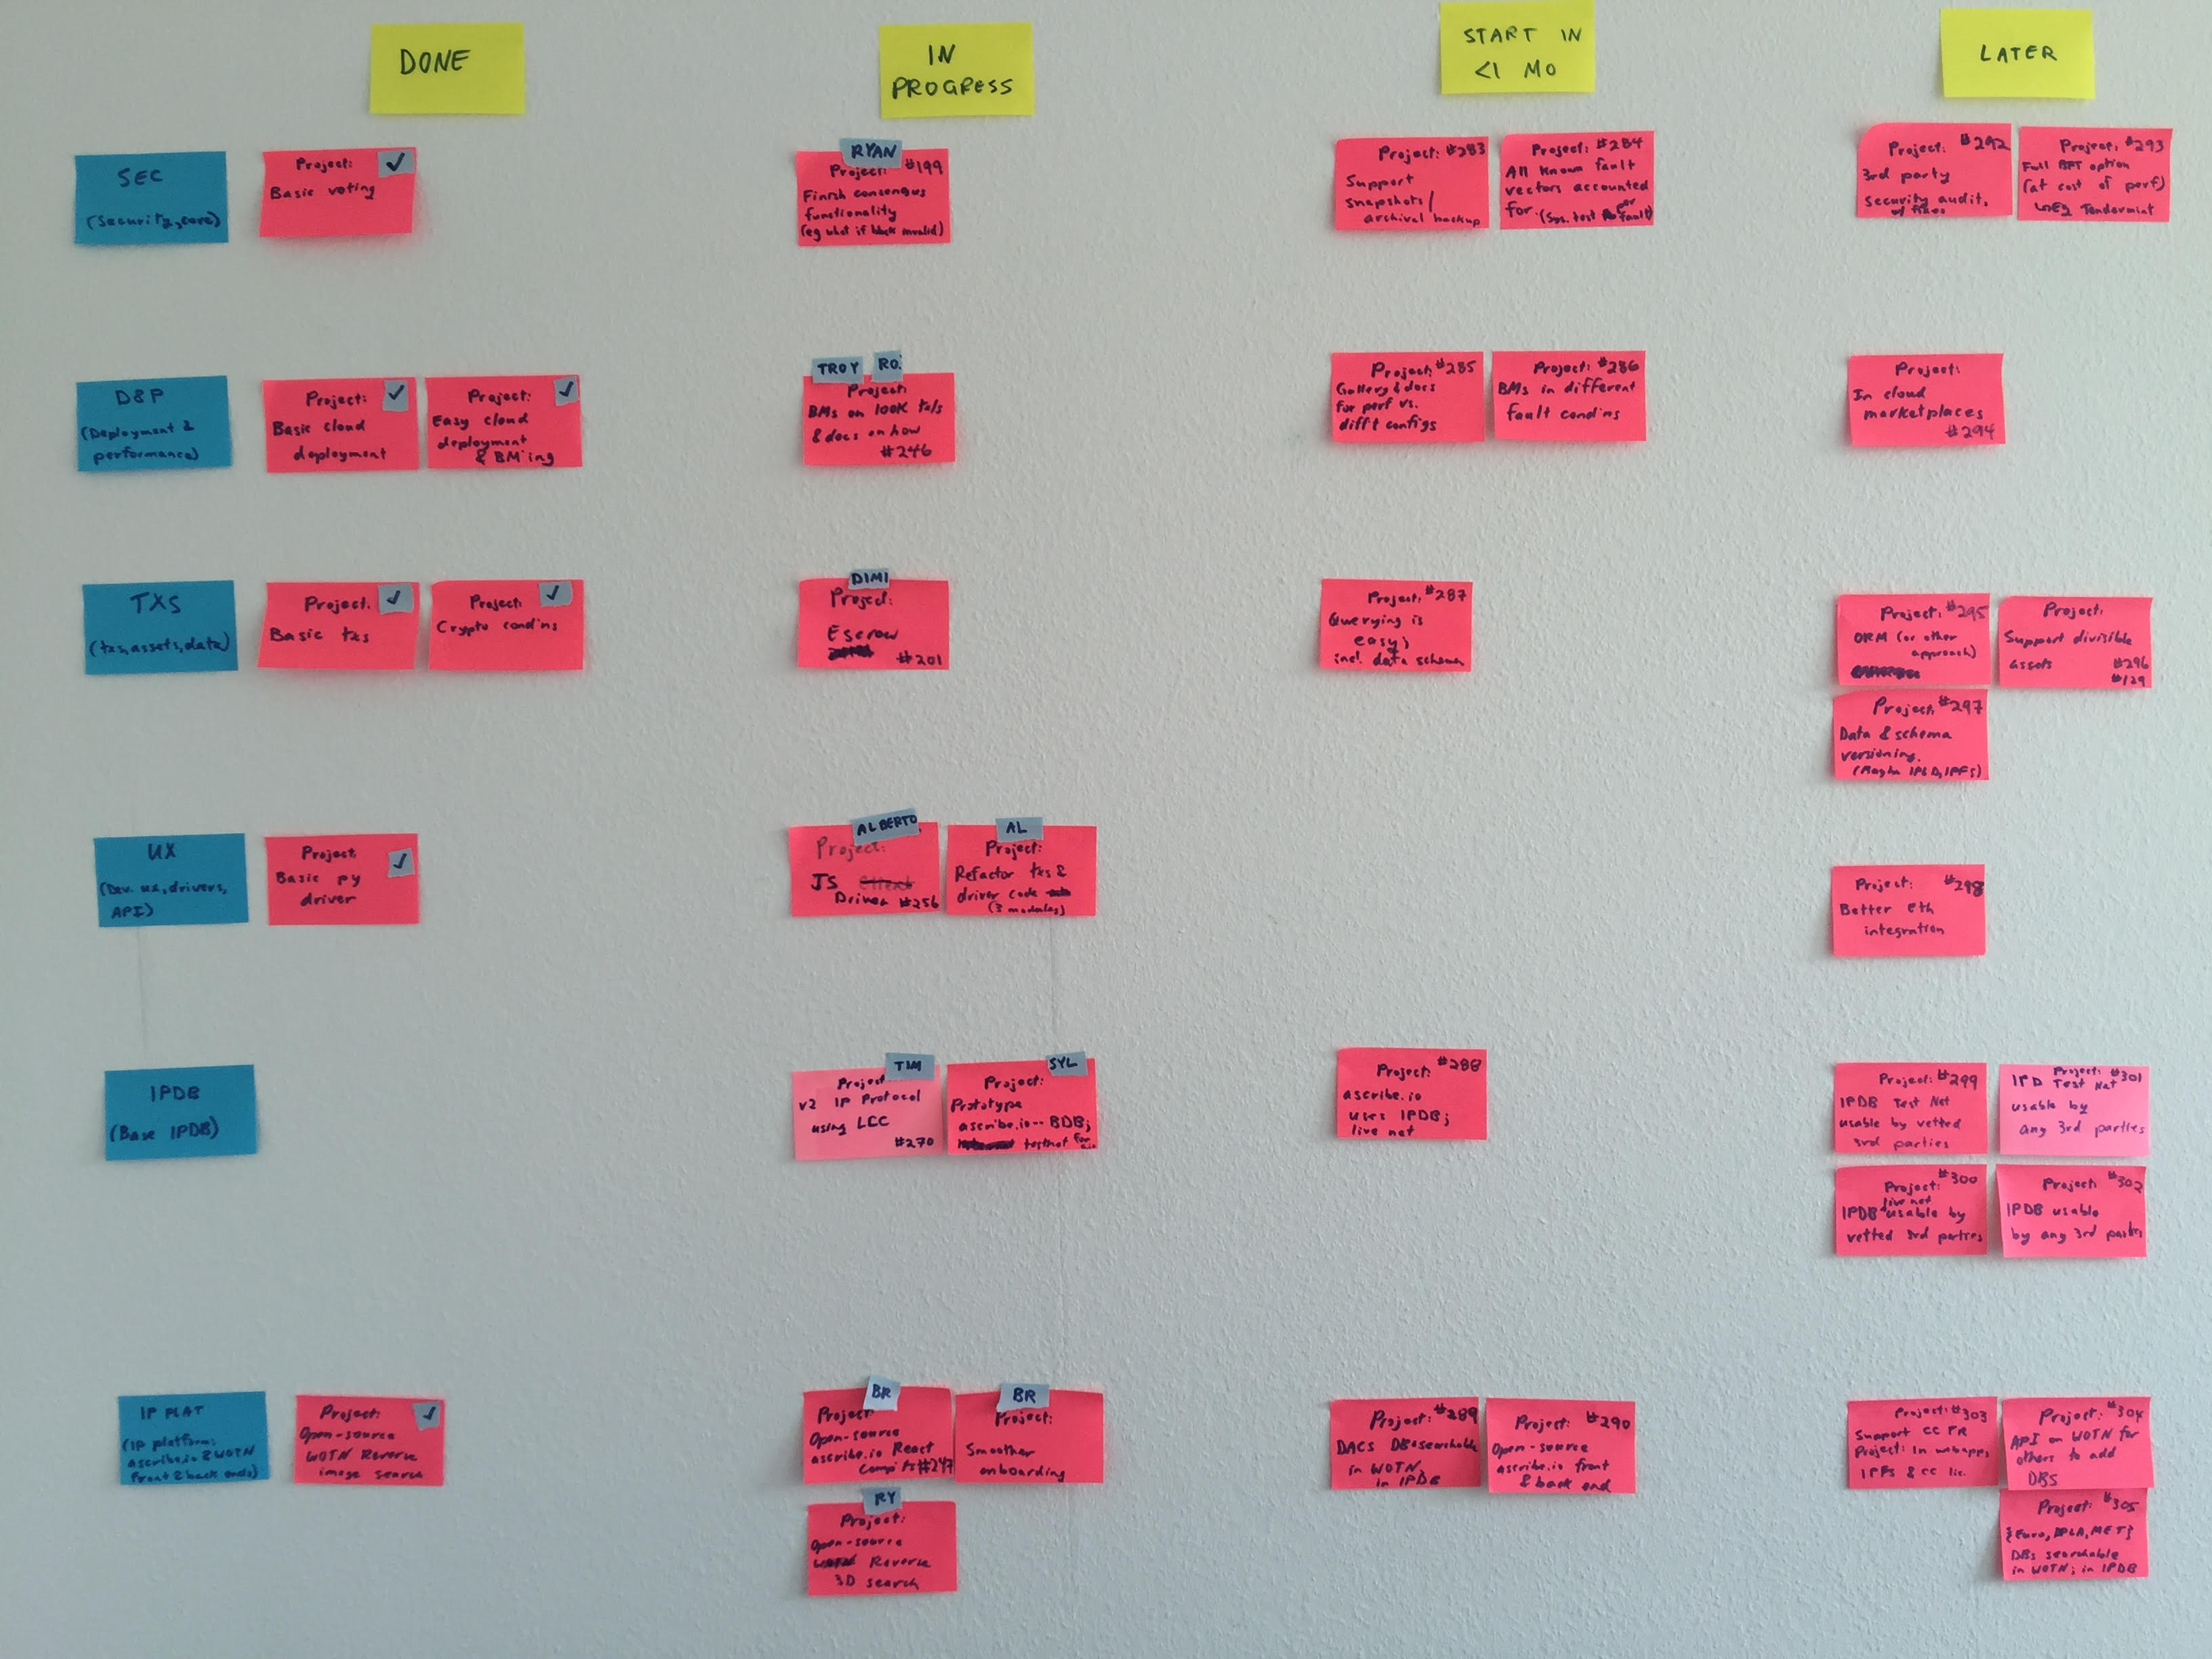 DONE
IN
PROGRESS
START IN
<1 MO
LATER
SEC
(Security, core)
Project:
Basic voting
RYAN
Project: #199
Finish consensus
functionality
(eg what if block invalid)
Project: #283
Support
snapshots/
archival backup
Project: #284
All known fault
vectors accounted
for
(Sys. test per fault)
Project: #292
3rd party
security audit,
w/ fixes
Project: #293
Full BFT option
(at cost of perf)
Tendermint
D&P
(Deployment &
performance)
Project:
Basic cloud
deployment
Project:
Easy cloud
deployment
& BM'ing
TROY
RO.
Project:
BMs on 100K tx/s
& docs on how
#246
Project: #285
Gallery & docs
for perf vs.
diff't configs
Project: #286
BMs in different
fault cond'ns
Project:
In cloud
marketplaces
#294
TXS
(txs, assets, data)
Project:
Basic txs
Project:
Crypto cond'ns
DIMI
Project:
Escrow
#201
Project: #287
Querying is
easy;
incl. data schema
Project: #295
ORM (or other
approach)
Project:
Support divisible
assets
#296
#129
Project: #297
Data & schema
versioning.
(Maybe IPLD, IPFS)
UX
(Dev. ux, drivers,
API)
Project:
Basic py
driver
ALBERTO
Project:
JS
Driver #256
AL
Project:
Refactor txs &
driver code
(3 modules)
Project: #298
Better Eth
integration
IPDB
(Base IPDB)
TIM
Project
v2 IP Protocol
using LCC
#270
SYL
Project:
Prototype
ascribe.io -- BDB;
testnet for
Project: #288
ascribe.io
uses IPDB;
live net
Project: #299
IPDB Test Net
usable by vetted
3rd parties
Project: #301
IPD Test Net
usable by
any 3rd parties
Project: #300
live net
IPDB ^ usable by
vetted 3rd parties
Project: #302
IPDB usable
by any 3rd parties
IP PLAT
(IP platform:
ascribe.io & WOTN
front & back ends)
Project:
Open-source
WOTN Reverse
image search
BR
Project:
Open-source
ascribe.io React
Comp'ts #247
BR
Project:
Smoother
onboarding
RY
Project:
Open-source
Reverse
3D search
Project: #289
DACS DB searchable
in WOTN,
in IPDB
Project: #290
Open-source
ascribe.io front
& back end
Project: #303
Support CC FR
Project: In webapps
IPFS & CC lic.
Project: #304
API on WOTN for
others to add
DBS
Project: #305
{Euro, DPLA, MET}
DBs searchable
in WOTN; in IPDB